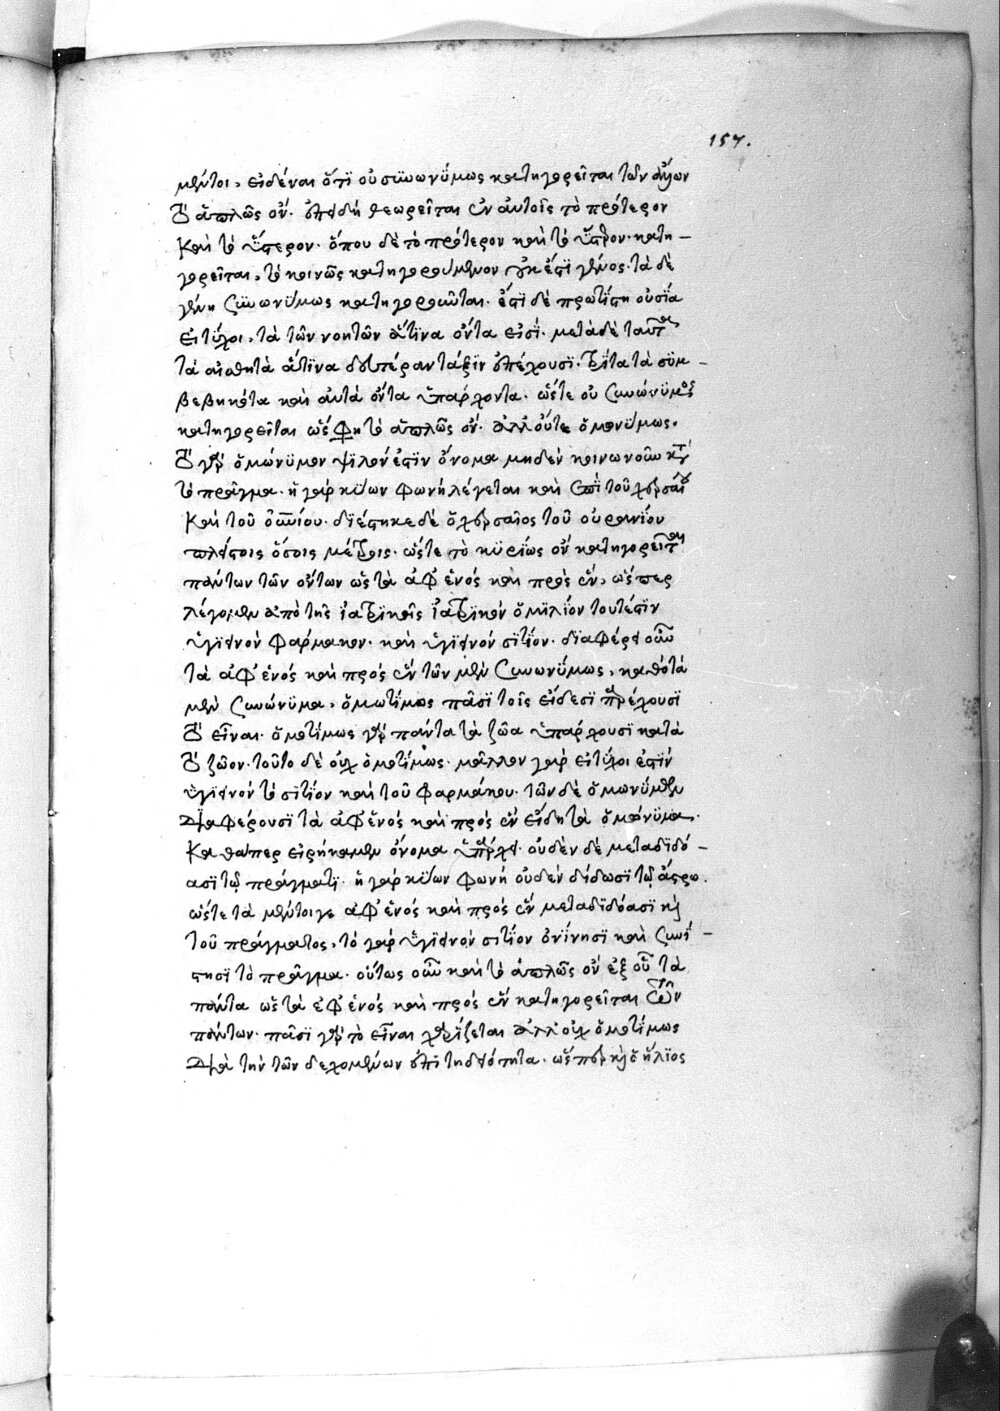 157.
μέντοι, εἰδέναι ὅτι οὐ συνωνύμως κατηγορεῖται τῶν ἄλλων
τὸ ἁπλῶς ὄν· ἐπειδὴ θεωρεῖται ἐν αὐτοῖς τὸ πρότερον
καὶ τὸ ὕστερον· ὅπου δὲ τὸ πρότερον καὶ τὸ ὕστερον· κατη-
γορεῖται, τὸ κοινῶς κατηγορούμενον οὐκ ἔστι γένος· τὰ δὲ
γένη συνωνύμως κατηγοροῦνται· ἔστι δὲ πρωτίστη οὐσία
εἰ τύχοι, τὰ τῶν νοητῶν ἅτινα ὄντα εἰσί· μετὰ δὲ ταῦτα
τὰ αἰσθητὰ ἅτινα δευτέραν τάξιν ἐπέχουσι· εἶτα τὰ συμ-
βεβηκότα καὶ αὐτὰ ὄντα ὑπάρχοντα· ὥστε οὐ συνωνύμως
κατηγορεῖται ὡς ἔφη τὸ ἁπλῶς ὄν· ἀλλ' οὔτε ὁμωνύμως.
τὸ γὰρ ὁμώνυμον ψιλόν ἐστιν ὄνομα μηδὲν κοινωνοῦν κατὰ
τὸ πρᾶγμα· ἡ γὰρ κύων φωνὴ λέγεται καὶ ἐπὶ τοῦ χερσαίου
καὶ τοῦ οὐνίου· διέστηκε δὲ ὁ χερσαῖος τοῦ οὐρανίου
πλείστοις ὅσοις μέτροις· ὥστε τὸ κυρίως ὂν κατηγορεῖται
πάντων τῶν ὄντων ὡς τὰ ἀφ' ἑνός καὶ πρὸς ἕν, ὥσπερ
λέγομεν ἀπὸ τῆς ἰατρικῆς ἰατρικὸν σμιλίον τουτέστιν
ὑγιεινὸν φάρμακον· καὶ ὑγιεινὸν σιτίον· διαφέρει οὖν
τὰ ἀφ' ἑνός καὶ πρὸς ἓν τῶν μὲν συνωνύμως, καθὸ τὰ
μὲν συνώνυμα, ὁμοτίμως πᾶσι τοῖς εἴδεσι παρέχουσι
τὸ εἶναι· ὁμοτίμως γὰρ πάντα τὰ ζῶα ὑπάρχουσι κατὰ
τὸ ζῶον· τοῦτο δὲ οὐχ ὁμοτίμως· μᾶλλον γὰρ εἰ τύχοι ἐστίν
ὑγιεινὸν τὸ σιτίον καὶ τοῦ φαρμάκου· τῶν δὲ ὁμωνύμων
διαφέρουσι τὰ ἀφ' ἑνός καὶ πρὸς ἓν εἴδη τὰ ὁμώνυμα.
καθάπερ εἰρήκαμεν ὄνομα ὑπάρχει· οὐδὲν δὲ μεταδιδό-
ασι τῷ πράγματι· ἡ γὰρ κύων φωνὴ οὐδὲν δίδωσι τῷ ἄστρῳ.
ὥστε τὰ μέντοιγε ἀφ' ἑνός καὶ πρὸς ἓν μεταδιδόασι καὶ
τοῦ πράγματος, τὸ γὰρ ὑγιεινὸν σιτίον ὀνίνησι καὶ συνί-
στησι τὸ πρᾶγμα· οὕτως οὖν καὶ τὸ ἁπλῶς ὂν ἐξ οὗ τὰ
πάντα ὡς τὰ ἐφ' ἑνός καὶ πρὸς ἓν κατηγορεῖται τῶν
πάντων· πᾶσι γὰρ τὸ εἶναι χαρίζεται ἀλλ' οὐχ ὁμοτίμως
διὰ τὴν τῶν δεχομένων ἐπιτηδειότητα· ὥσπερ καὶ ὁ ἥλιος